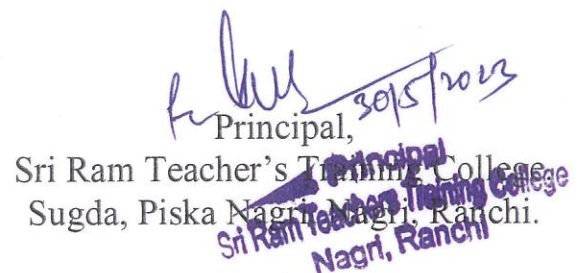 30/5/2023
Principal,
Sri Ram Teacher's Training College,
Sugda, Piska Nagri, Nagri, Ranchi.
Principal
Sri Ram Teachers Training College
Nagri, Ranchi